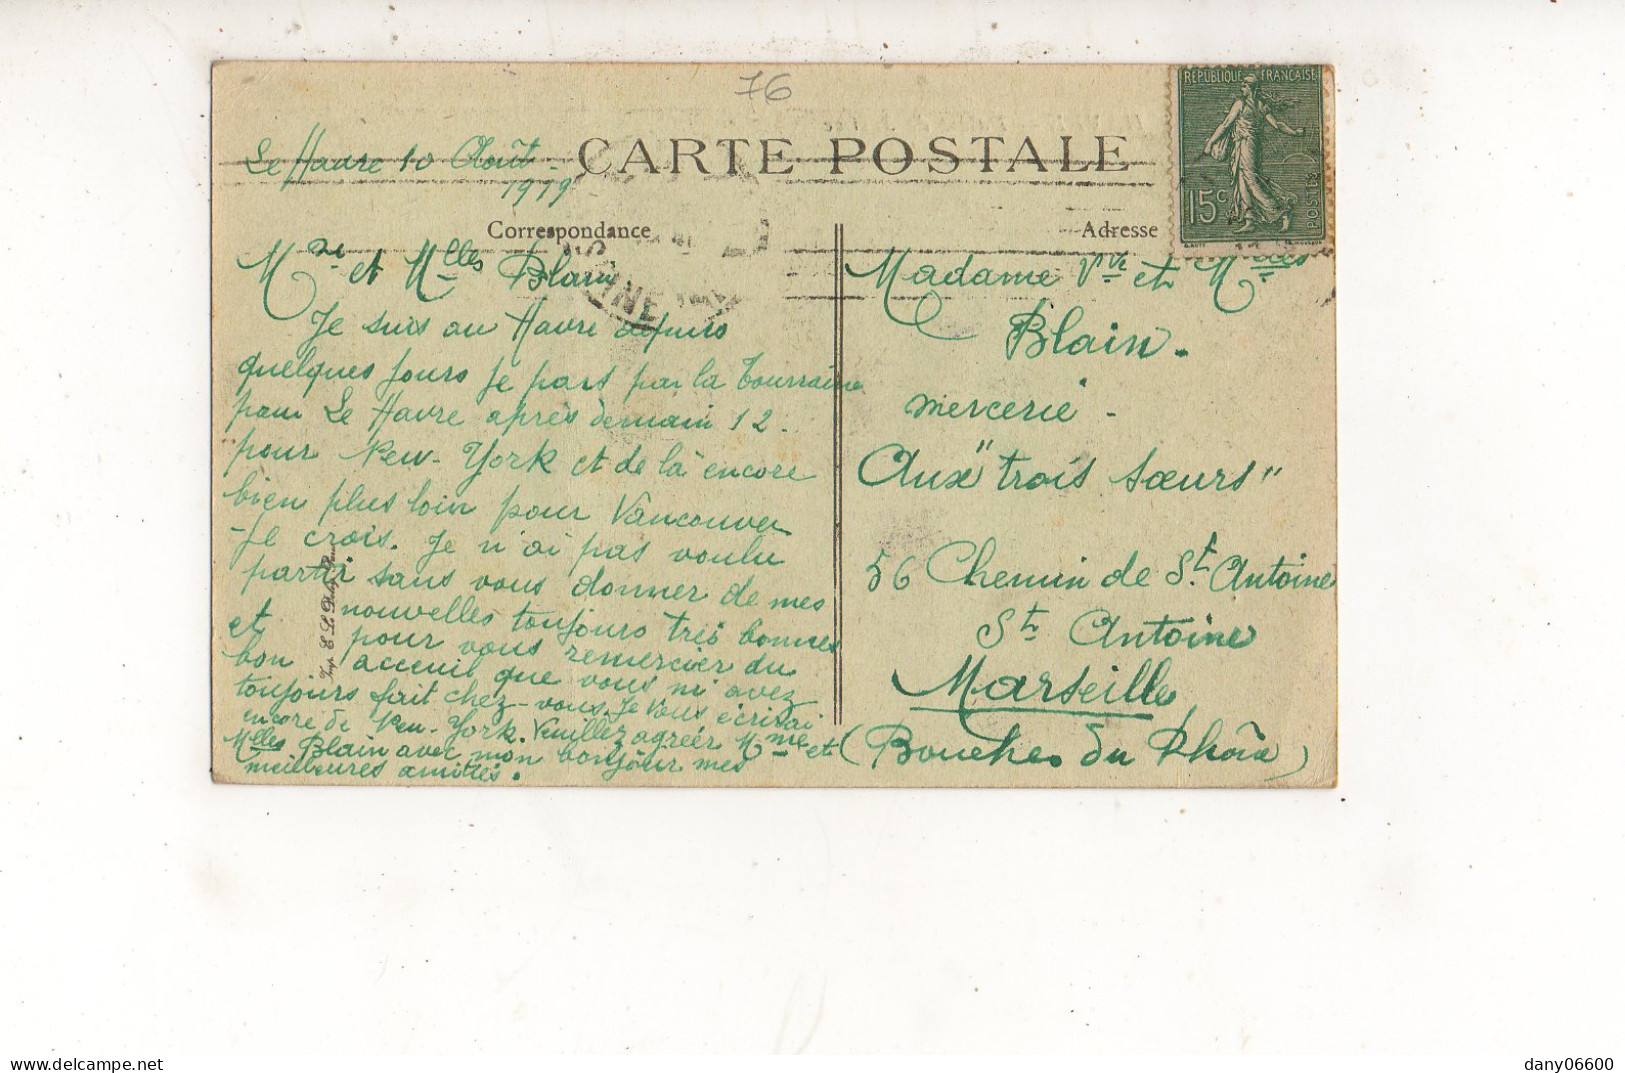 76
CARTE POSTALE
RÉPUBLIQUE FRANÇAISE
15c
POSTES
Le Havre 10 Août
1919
Correspondance
Adresse
Mme et Mlles Blain
Je suis au Havre depuis
quelques jours je pars par la Tourraine
pour Le Havre après demain 12.
pour New-York et de là encore
bien plus loin pour Vancouver
je crois. Je n'ai pas voulu
partir sans vous donner de mes
nouvelles toujours très bonnes
et pour vous remercier du
bon acceuil que vous m'avez
toujours fait chez-vous. Je vous écrirai
encore de New-York. Veuillez agréer Mme et
Mlles Blain avec mon bonjour mes
meilleures amitiés.
Madame Vve et Mlles
Blain.
mercerie.
Aux "trois sœurs"
56 Chemin de St. Antoine
St. Antoine
Marseille
(Bouches du Rhône)
dany06600